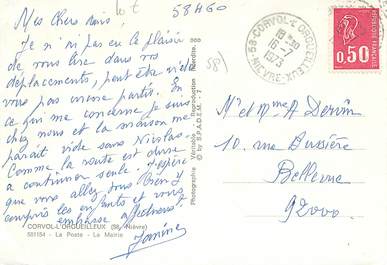 58460
Mes chers amis !
Je n'ai pas eu le plaisir
de vous lire dans vos
déplacements, peut être n'êtes
vous pas encore partis. En
ce qui me concerne je suis
chez nous et la maison me
parait vide sans Nicolas.
Comme la route est dure
a continuer seule. J'espère
que vous allez tous bien y
compris les enfants et vous
embrasse affectueusement
Janine
CORVOL-L'ORGUEILLEUX (58 - Nièvre)
581154 - La Poste - La Mairie
Photographie Véritable - Reproduction Interdite.
© by S.P.A.D.E.M.
58)
58-CORVOL-L'ORGUEILLEUX
NIEVRE
16-7
1973
REPUBLIQUE FRANÇAISE
0,50
M' et Mme A Dervin
10 rue Bussière
Bellevue
92000